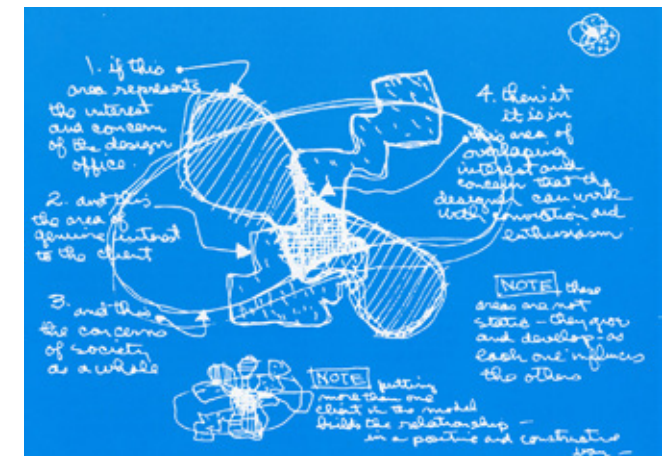 1. if this
area represents
the interest
and concern
of the design
office
2. and this
the area of
genuine interest
to the client
3. and this
the concerns
of society
as a whole
4. then it
it is in
this area of
overlaping
interest and
concern that the
designer can work
with conviction and
enthusiasm
NOTE these
areas are not
static - they grow
and develop - as
each one influences
the others
NOTE putting
more than one
client in the model
builds the relationship -
in a positive and constructive
way -